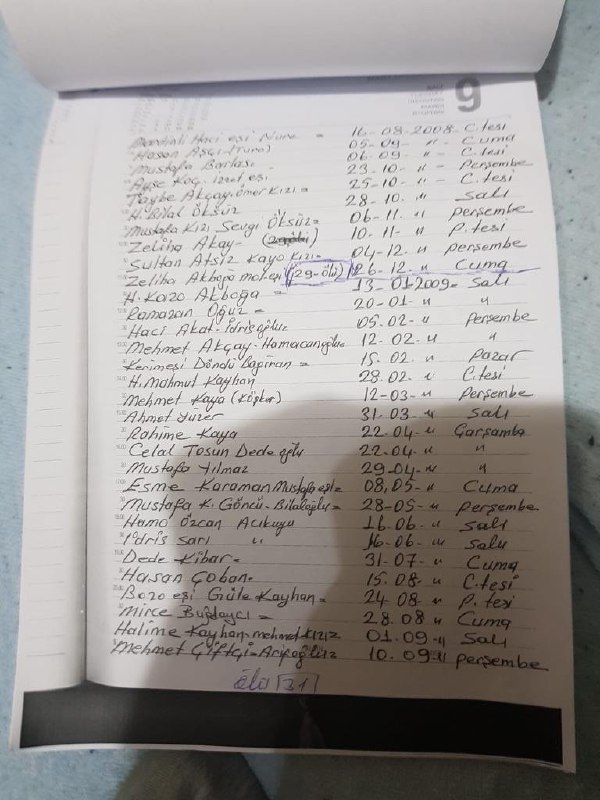 9
Hacı eşi Nure = 16-08-2008- C.tesi
Hasan Aşçı (Turo) 05-09- " - Cuma
Mustafa Barlas. 06-09- " - C.tesi
Ayşe Koç. İzzet eşi 23-10- " - Perşembe
Taybe Akçay. Ömer Kızı = 25-10- " - C.tesi
H. Bilal Öksüz 28-10- " Salı
Mustafa Kızı Sevgi Öksüz = 06-11. " Perşembe
Zeliha Akay- 10-11- " P.tesi
Sultan Atsız Kaya Kızı = 04-12. " Perşembe
Zeliha Akboğa (29-Ölü) 26-12. " Cuma
H. Kazo Akboğa = 13-01 2009- Salı
Ramazan Oğuz = 20-01- " "
Hacı Akat-İdrisoğlu= 05.02- " Perşembe
Mehmet Akçay-Hamacanoğlu= 12-02- " "
Kerimeşi Döndü Bağıran = 15.02- " Pazar
H. Mahmut Kayhan 28.02. " C.tesi
Mehmet Kaya (Köşker) 12-03- " Perşembe
Ahmet Yüzer 31-03- " Salı
Rahime Kaya 22-04- " Çarşamba
Celal Tosun Dede oğlu 22-04- " "
Mustafa Yılmaz 29-04- " "
Esme Karaman Mustafa eşi= 08.05- " Cuma
Mustafa K. Göncü-Bilaloğlu= 28-05- " Perşembe
Hamo Özcan Acıkuyu 16-06- " Salı
İdris Sarı " 16-06- " Salı
Dede Kibar= 31-07- " Cuma
Hasan Çoban= 15.08- " C.tesi
Bozo eşi Güle Kayhan = 24 08- " P.tesi
Mirce Buğdaycı = 28.08 " Cuma
Halime Kayhan-mehmet Kızı= 01.09-" Salı
Mehmet Çiftçi-Arifoğlu= 10.09-" Perşembe
ölü [31]